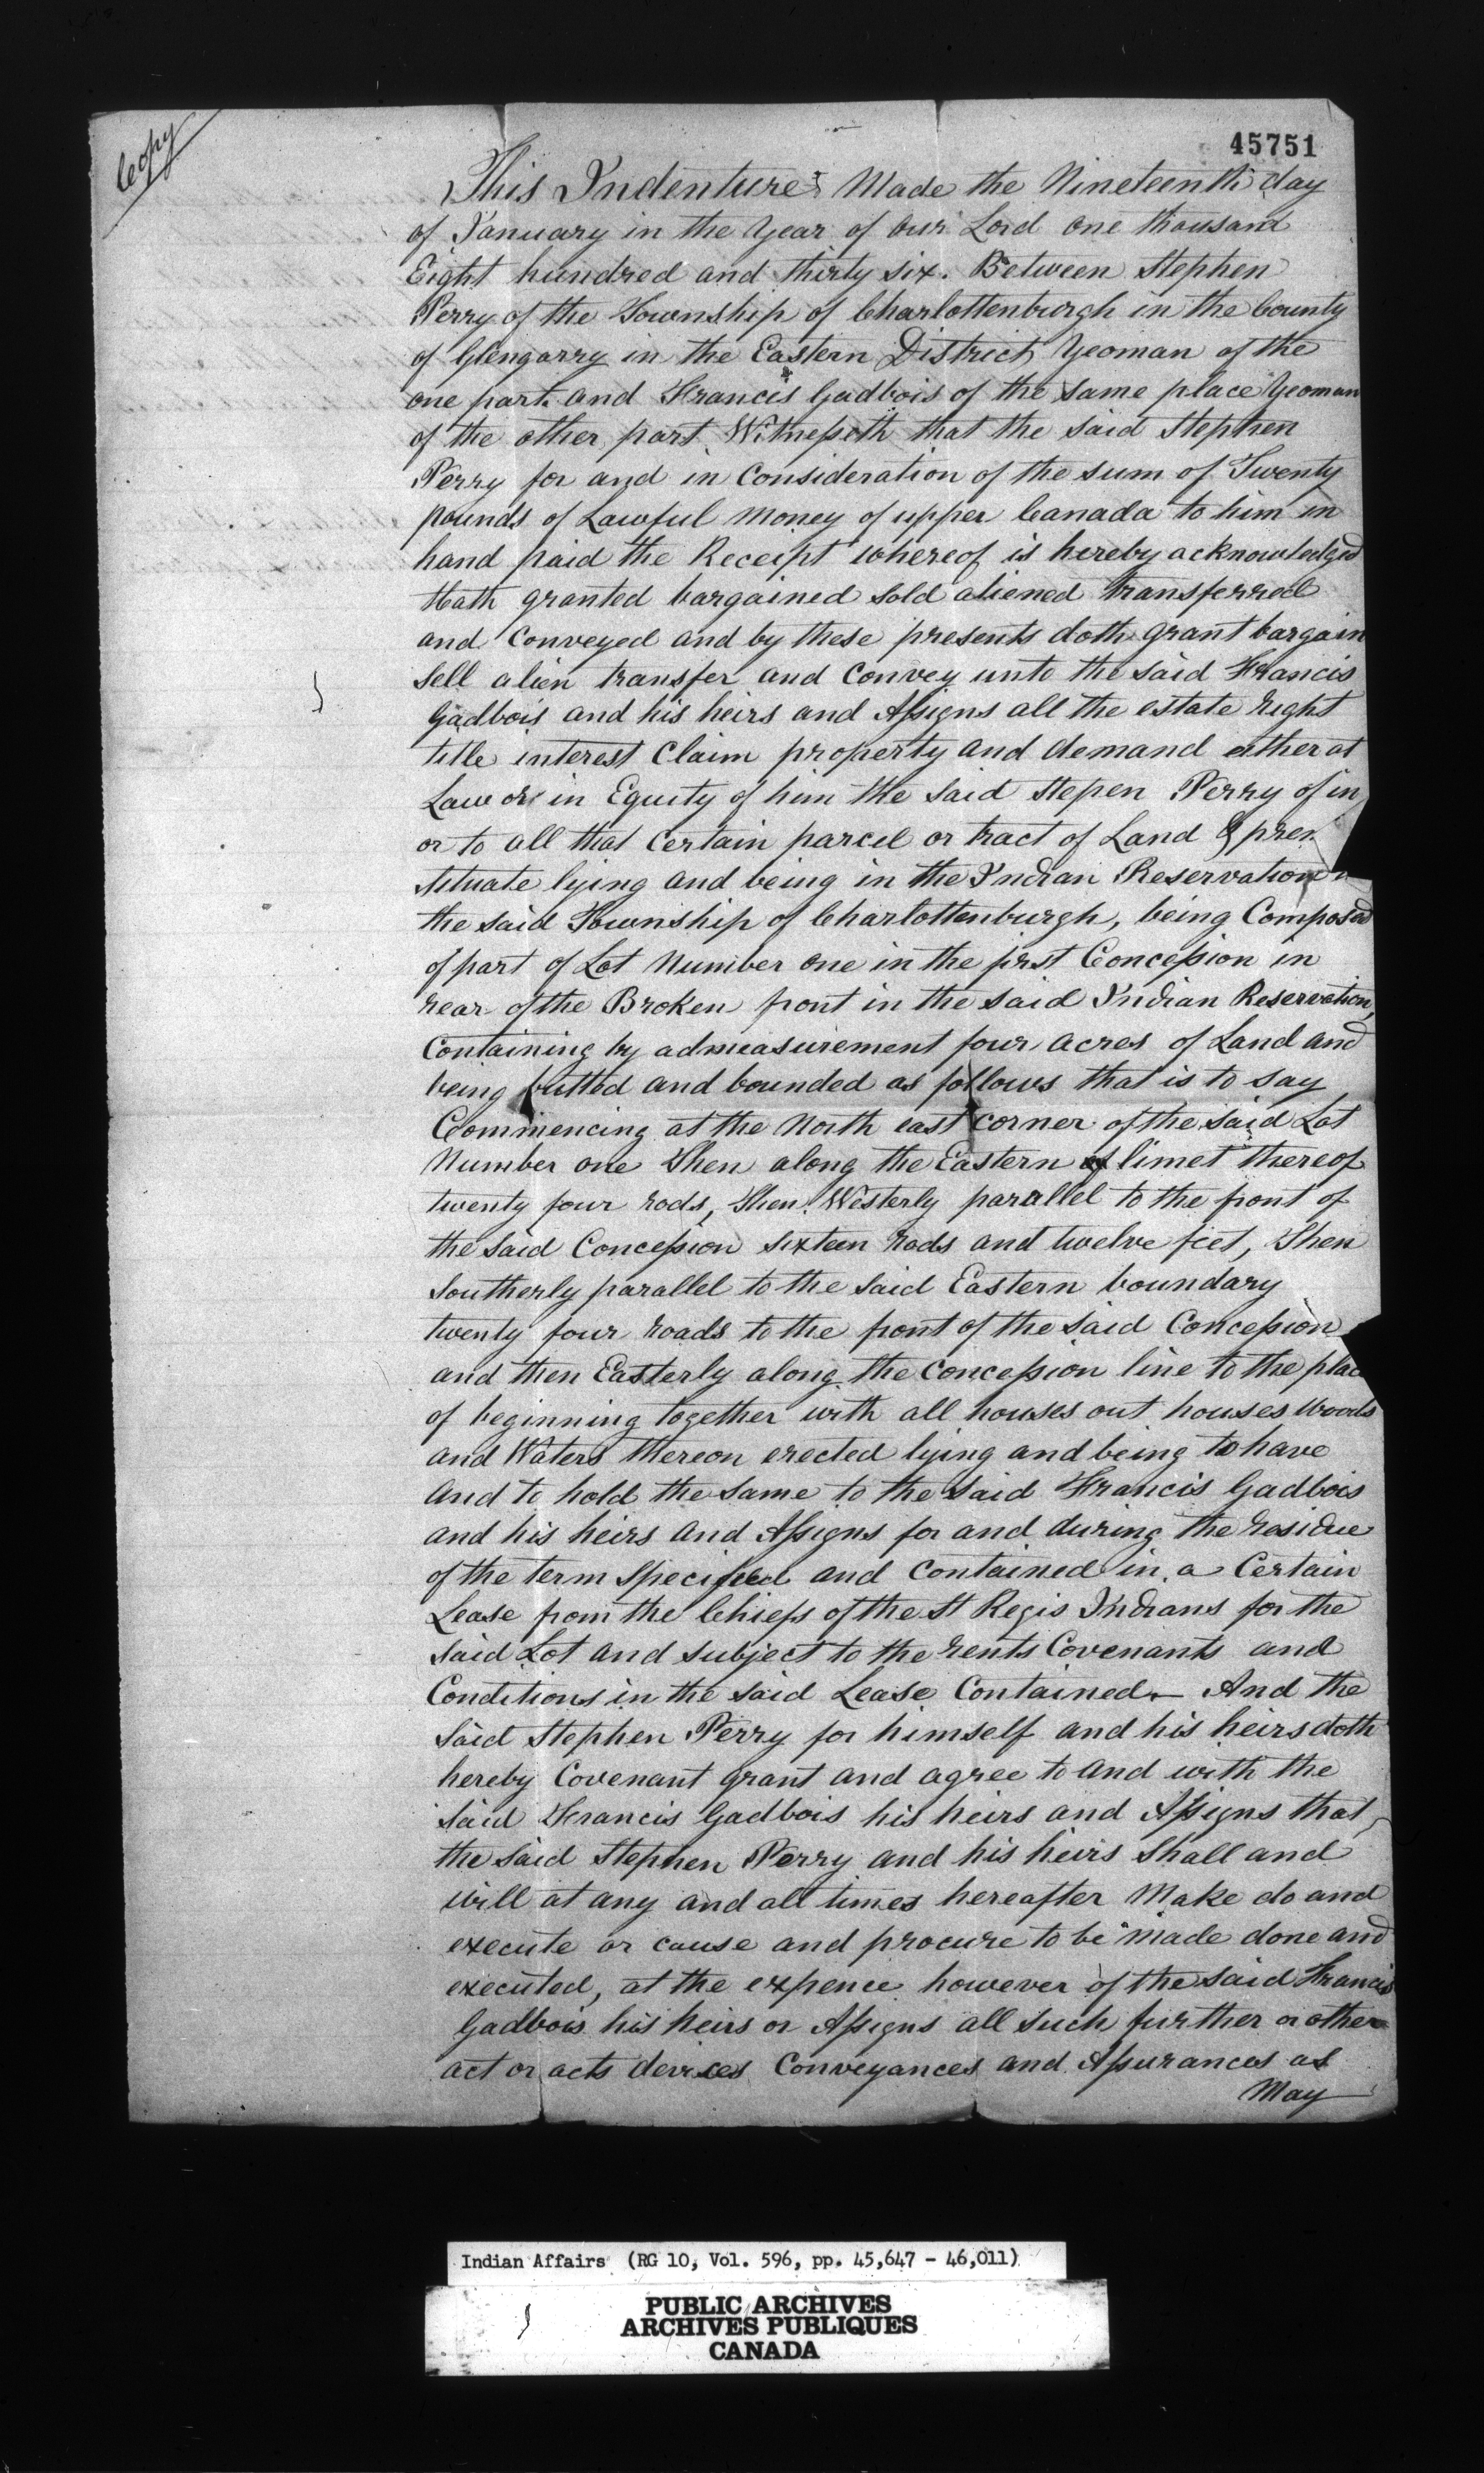 Copy
45751
This Indenture Made the Nineteenth day
of January in the Year of Our Lord One thousand
Eight hundred and thirty six. Between Stephen
Perry of the Township of Charlottenburgh in the County
of Glengarry in the Eastern District, Yeoman of the
one part and Francis Gadbois of the same place Yeoman
of the other part. Witnesseth that the said Stephen
Perry for and in Consideration of the sum of Twenty
pounds of Lawful Money of upper Canada to him in
hand paid the Receipt whereof is hereby acknowledged
Hath granted bargained sold aliened transferred
and Conveyed and by these presents doth grant bargain
sell alien transfer and Convey unto the said Francis
Gadbois and his heirs and Assigns all the estate right
title interest Claim property and demand either at
Law or in Equity of him the said Stepen Perry of in
or to all that Certain parcel or tract of Land &
situate lying and being in the Indian Reservation
the said Township of Charlottenburgh, being Composed
of part of Lot Number one in the first Concession in
rear of the Broken front in the said Indian Reservation,
Containing by admeasurement four acres of Land and
being butted and bounded as follows that is to say
Commencing at the North east corner of the said Lot
Number one Then along the Eastern of limet thereof
twenty four rods, Then Westerly parallel to the front of
the said Concession sixteen Rods and twelve feet, Then
Southerly parallel to the said Eastern boundary
twenty four roads to the front of the said Concession
and then Easterly along the Concession line to the place
of beginning together with all houses out houses Woods
and Waters thereon erected lying and being to have
and to hold the same to the said Francis Gadbois
and his heirs and Assigns for and during the residue
of the term specified and Contained in a Certain
Lease from the Chiefs of the St Regis Indians for the
said Lot and subject to the rents Covenants and
Conditions in the said Lease Contained — And the
said Stephen Perry for himself and his heirs doth
hereby Covenant grant and agree to and with the
said Francis Gadbois his heirs and Assigns that
the said Stephen Perry and his heirs Shall and
will at any and all times hereafter Make do and
execute or cause and procure to be made done and
executed, at the expence however of the said Francis
Gadbois his heirs or Assigns all such further or other
act or acts devises Conveyances and Assurances as
May
Indian Affairs (RG 10, Vol. 596, pp. 45,647 - 46,011)
PUBLIC ARCHIVES
ARCHIVES PUBLIQUES
CANADA